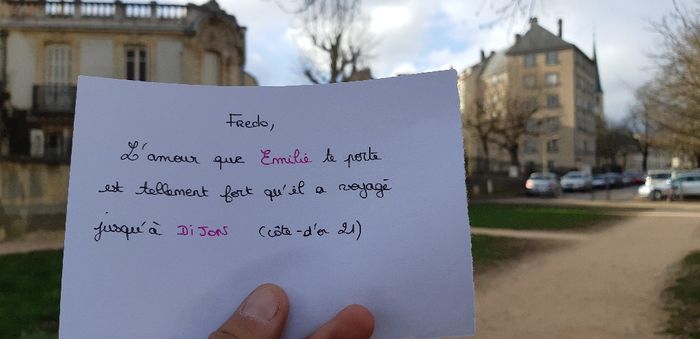 Fredo,
L'amour que Emilie te porte
est tellement fort qu'il a voyagé
jusqu'à DiJON (côte-d'or 21)